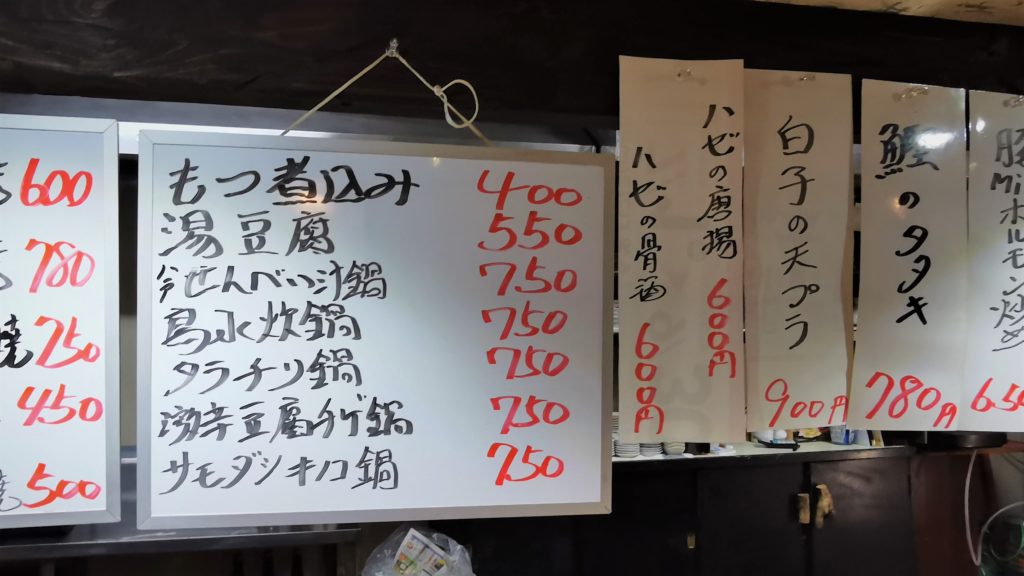 600
780
焼 250
450
焼 500
もつ煮込み 400
湯豆腐 550
せんべい汁鍋 750
鳥水炊鍋 750
タラチリ鍋 750
豆腐チゲ鍋 750
サモダシキノコ鍋 750
ハゼの唐揚 600円
ハゼの骨酒 600円
白子の天プラ 900円
鰹のタタキ 780円
豚Miホルモン炒め 650